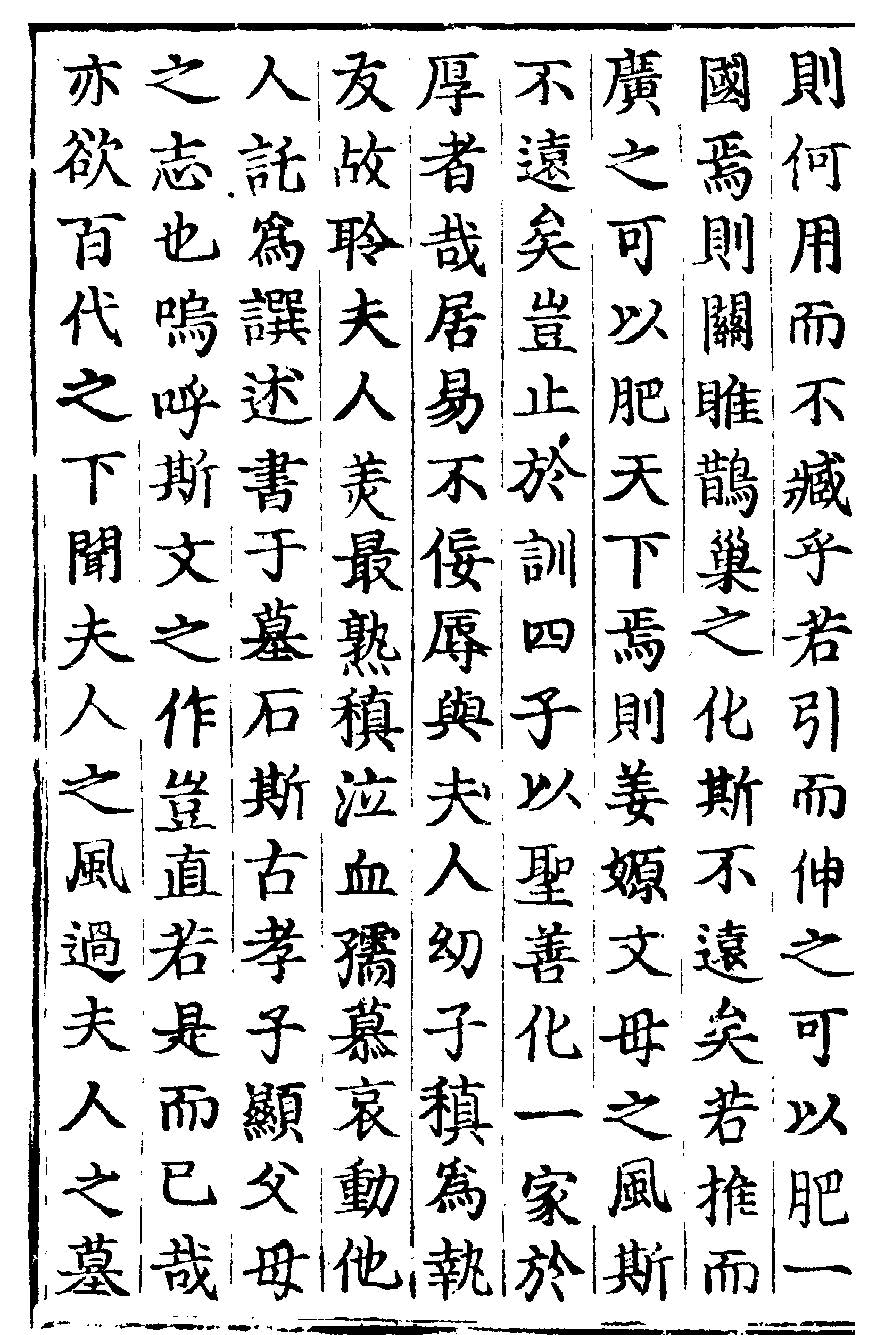 則何用而不臧乎若引而伸之可以肥一
國焉則關睢鵲巢之化斯不遠矣若推而
廣之可以肥天下焉則姜嫄文母之風斯
不遠矣豈止於訓四子以聖善化一家於
厚者哉居易不佞辱與夫人幼子稹爲執
友故聆夫人美最熟稹泣血孺慕哀動他
人託爲譔述書于墓石斯古孝子顯父母
之志也嗚呼斯文之作豈直若是而已哉
亦欲百代之下聞夫人之風過夫人之墓